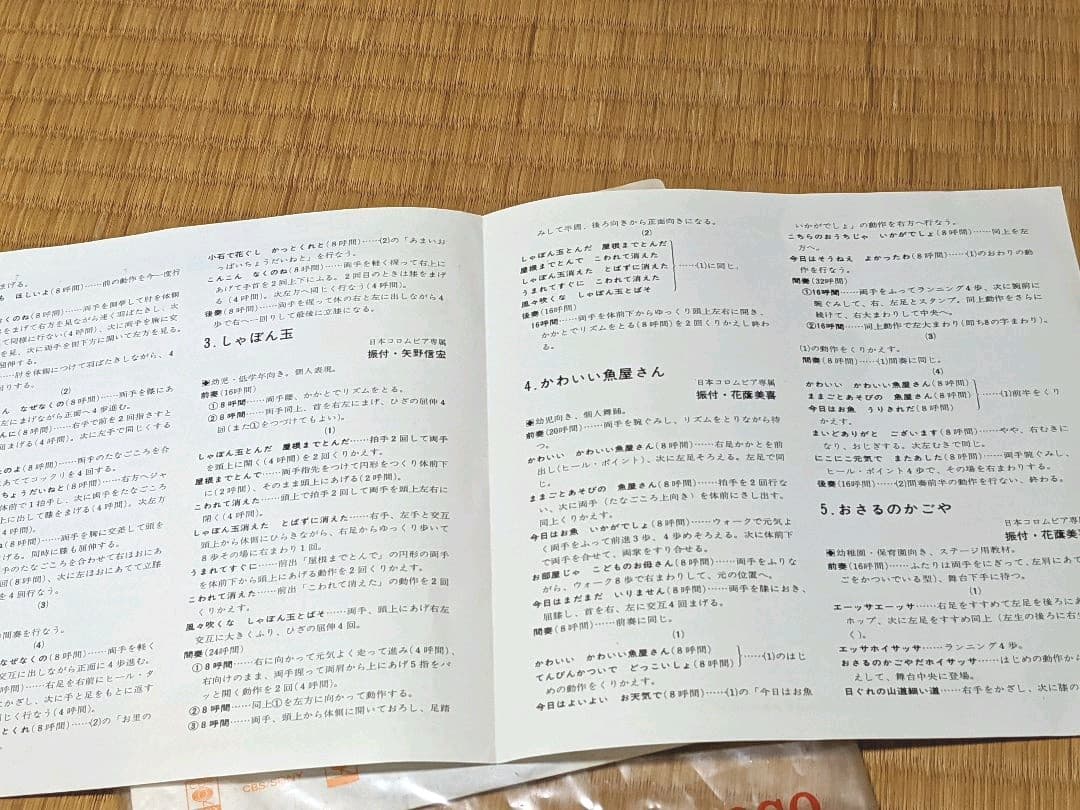 まげる。
も ほしいよ(8呼間)……前の動作を今一度行
なくのね(8呼間)……両手を側挙して肘を体側
をまげて右方を見ながら速く羽ばたきし、次
して同様に行ない(4呼間)、次に両手を胸に交
を見、次に両手を側下方に開いて左方を見る。
屈伸する。
……肘を体側につけて羽ばたきしながら、4
回りする。
(2)
ん なぜなくの(8呼間)……両手を膝にあ
左にまげながら正面へ4歩進む。
んに(8呼間)……右手で前を2回指さすと
回まげる(4呼間)、次に左手で同じくする
たのよ(8呼間)……両手のたなごころを合
にあててコックリを4回する。
ちょうだいねと(8呼間)……右方へジャ
体前で1拍手し、次に両手をたなごころ
上に出して膝をまげる(4呼間)。次左方
4呼間)。
ね(8呼間)……両手を胸に交差して頭を
げる。同時に膝も屈伸する。
手のたなごころを合わせて右ほおにあ
回(8呼間)、次に左ほおにあてて立膝
を4回行なう。
(3)
の間奏を行なう。
(4)
なぜなくの(8呼間)……両手を軽く
交互に出しながら正面に4歩進む。
呼間)……右足を右前にヒール・タ
かざし、次に手と足をもとに返す
同じく行なう(4呼間)。
とくれ(8呼間)……(2)の「お里の
小石で花ぐし かっとくれと(8呼間)……(2)の「あまいお
っぱいちょうだいねと」を行なう。
こんこん なくのね(8呼間)……両手を軽く握って右上に
あげて手首を2回上下にふる。2回目のときは膝をまげ
る(4呼間)。次左方へ同じく行なう(4呼間)。
後奏(8呼間)……両手を握って体の右と左に出しながら4
歩で右へ一回りして最後に立膝になる。
3.しゃぼん玉
日本コロムビア専属
振付・矢野信宏
◉幼児・低学年向き。個人表現。
前奏(16呼間)
①8呼間……両手腰、かかとでリズムをとる。
②8呼間……両手同上、首を右左にまげ、ひざの屈伸4
回(また①をつづけてもよい)。
(1)
しゃぼん玉とんだ 屋根までとんだ……拍手2回して両手
を頭上に開く(4呼間)を2回くりかえす。
屋根までとんで……両手指先をつけて円形をつくり体前下
に(2呼間)、そのまま頭上にあげる(2呼間)。
こわれて消えた……頭上で拍手2回して両手を頭上左右に
開く(4呼間)。
しゃぼん玉消えた とばずに消えた……右手、左手と交互
頭上から体側にひらきながら、右足からゆっくり歩いて
8歩その場に右まわり1回。
うまれてすぐに……前出「屋根までとんで」の円形の両手
を体前下から頭上にあげる動作を2回くりかえす。
こわれて消えた……前出「こわれて消えた」の動作を2回
くりかえす。
風々吹くな しゃぼん玉とばそ……両手、頭上にあげ右左
交互に大きくふり、ひざの屈伸4回。
間奏(24呼間)
①8呼間……右に向かって元気よく走って進み(4呼間)、
右向けのまま、両手握って両肩から上にあげ5指をパ
ッと開く動作を2回(4呼間)。
②8呼間……同上①を左方に向かって動作する。
③8呼間……両手、頭上から体側に開いておろし、足踏
みして半周、後ろ向きから正面向きになる。
(2)
しゃぼん玉とんだ 屋根までとんだ
屋根までとんで こわれて消えた
しゃぼん玉消えた とばずに消えた ……(1)に同じ。
うまれてすぐに こわれて消えた
風々吹くな しゃぼん玉とばそ
後奏(16呼間)
16呼間……両手を体前下からゆっくり頭上左右に開き、
かかとでリズムをとる(8呼間)を2回くりかえし終わ
る。
4.かわいい魚屋さん
日本コロムビア専属
振付・花蔭美喜
◉幼児向き、個人舞踊。
前奏(20呼間)……両手を腕ぐみし、リズムをとりながら待
つ。
(1)
かわいい かわいい魚屋さん(8呼間)……右足かかとを前
出し(ヒール・ポイント)、次に左足そろえる。左足で同
じ。
ままごとあそびの 魚屋さん(8呼間)……拍手を2回行な
い、次に両手(たなごころ上向き)を体前にさし出す。
同上くりかえす。
今日はお魚 いかがでしょ(8呼間)……ウォークで元気よ
く両手をふって前進3歩、4歩めそろえる。次に体前下
で両手を合せて、両掌をすり合せる。
お部屋じゃ こどものお母さん(8呼間)……両手をふりな
がら、ウォーク8歩で右まわりして、元の位置へ。
今日はまだまだ いりません(8呼間)……両手を膝におき、
屈膝し、首を右、左に交互4回まげる。
間奏(8呼間)……前奏に同じ。
(1)
かわいい かわいい魚屋さん(8呼間)
てんびんかついで どっこいしょ(8呼間) ……(1)のはじ
めの動作をくりかえす。
今日はよいよい お天気で(8呼間)……(1)の「今日はお魚
いかがでしょ」の動作を右方へ行なう。
こちらのおうちじゃ いかがでしょ(8呼間)……同上を左
方へ。
今日はそうねえ よかったわ(8呼間)……(1)のおわりの動
作を行なう。
間奏(32呼間)
①16呼間……両手をふってランニング4歩、次に腕前に
腕ぐみして、右、左足とスタンプ。同上動作をさらに
続けて、右大まわりして中央へ。
②16呼間……同上動作で左大まわり(即ち8の字まわり)。
(3)
(1)の動作をくりかえす。
間奏(8呼間)……(1)間奏に同じ。
(4)
かわいい かわいい魚屋さん(8呼間)
ままごとあそびの 魚屋さん(8呼間) ……(1)前半をくり
今日はお魚 うりきれだ(8呼間)
かえす。
まいどありがと ございます(8呼間)……やや、右むきに
なり、おじぎする。次左むきで同じ。
にこにこ元気で またあした(8呼間)……両手腕ぐみし、
ヒール・ポイント4歩で、その場を右まわりする。
後奏(16呼間)……(2)間奏前半の動作を行ない、終わる。
5.おさるのかごや
日本コロムビア専
振付・花蔭美
◉幼稚園・保育園向き、ステージ用教材。
前奏(16呼間)……ふたりは両手をにぎって、左肩にあて
ごをかついでいる型)、舞台下手に待つ。
(1)
エーッサエーッサ……右足をすすめて左足を後ろにあ
ホップ、次に左足をすすめ同上(左生の後ろに右
く)。
エッサホイサッサ……ランニング4歩。
おさるのかごやだホイサッサ……はじめの動作から
えして、舞台中央に登場。
日ぐれの山道細い道……右手をかざし、次に膝の
CBS/SONY